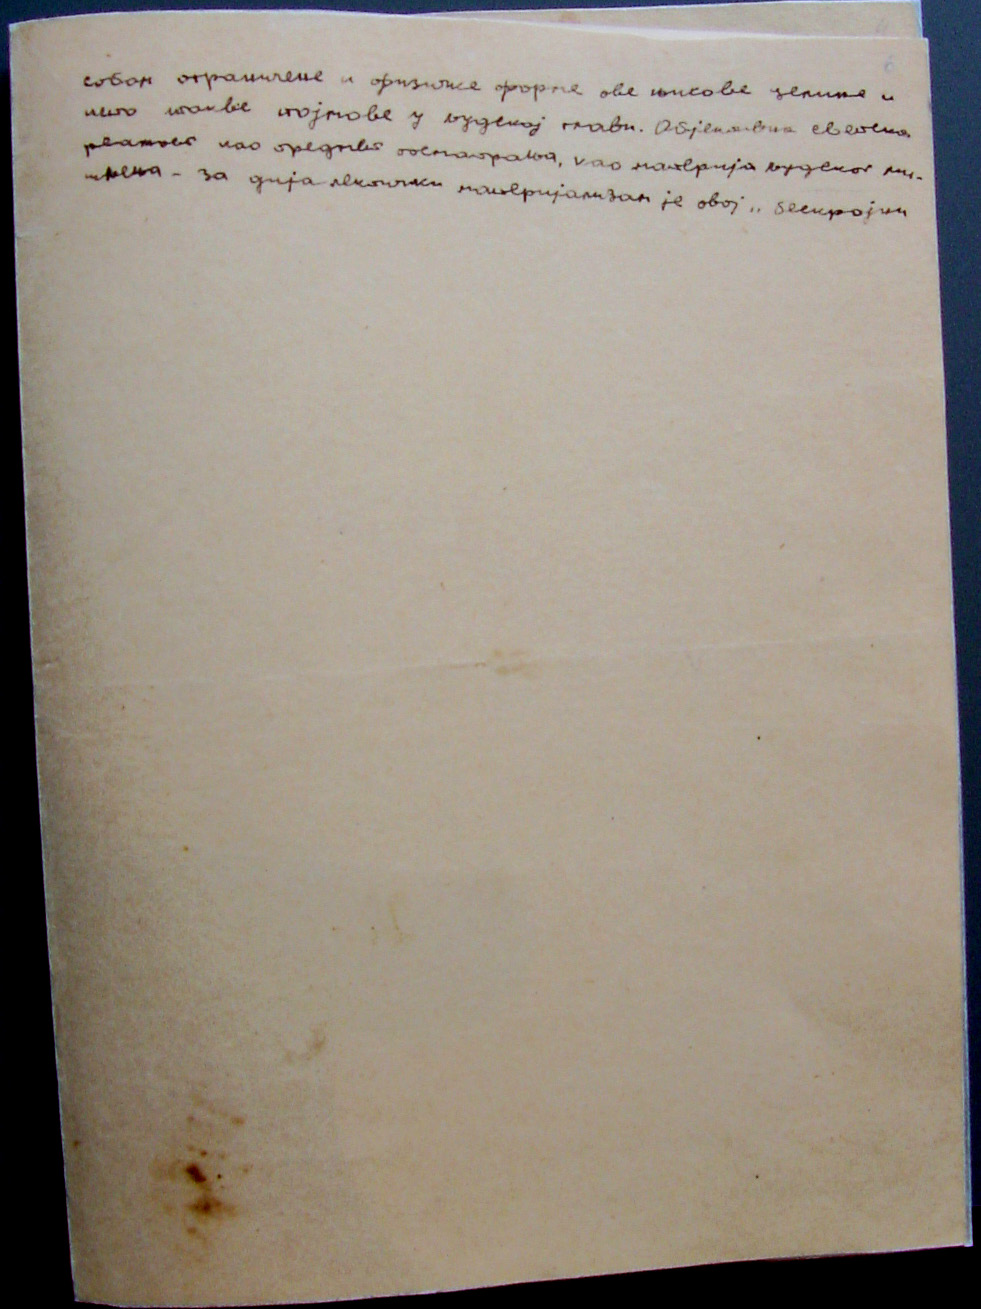 6
собом ограничене и физичке форме ове њихове целине и
исто такве појмове у људској глави. Објективна светска
реалност као предмет посматрања, као материја људског ми-
шљења – за дијалектички материјализам је овај „бескрајни